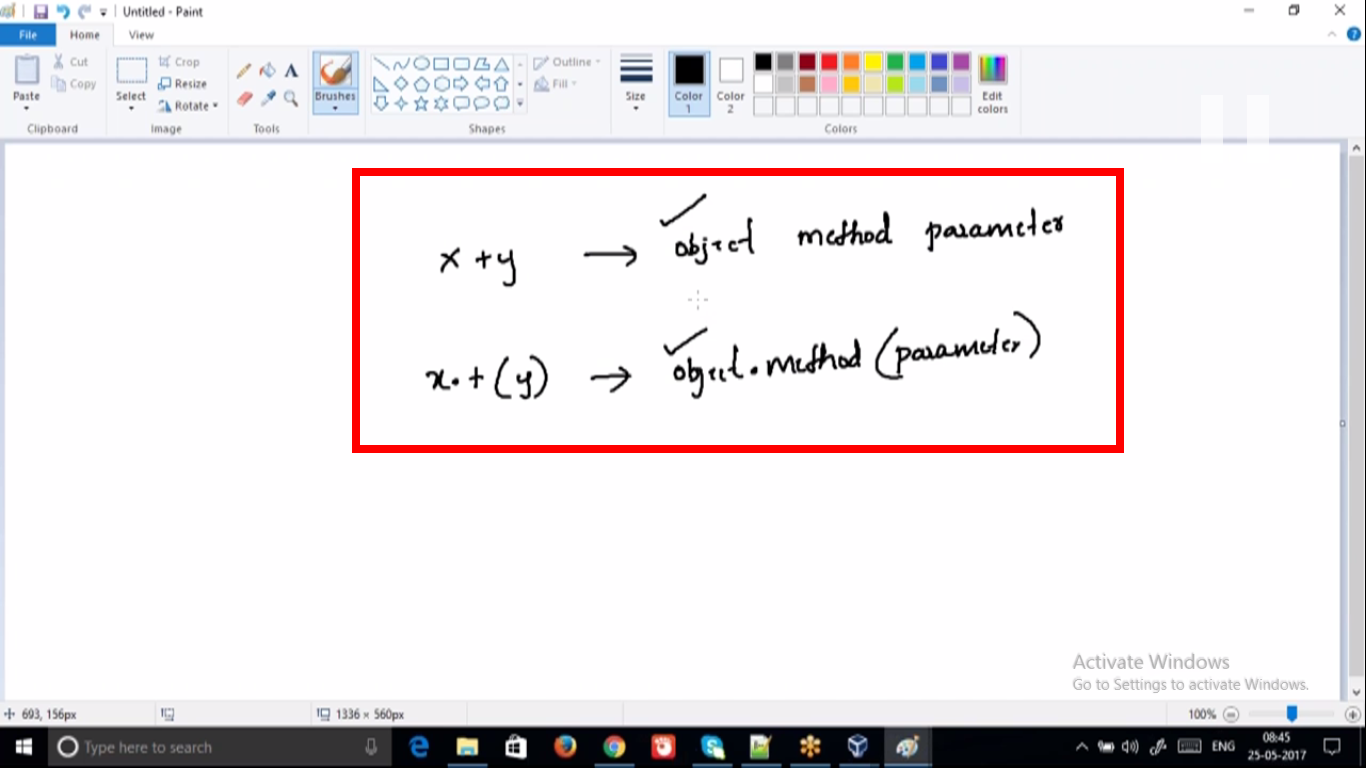 Untitled - Paint
File Home View
Paste Cut Copy Select Crop Resize Rotate Brushes Outline Fill Size Color 1 Color 2 Edit colors
Clipboard Image Tools Shapes Colors
x + y → object method parameter
x. + (y) → object.method (parameter)
Activate Windows
Go to Settings to activate Windows.
693, 156px 1336 × 560px 100%
Type here to search ENG 08:45
25-05-2017